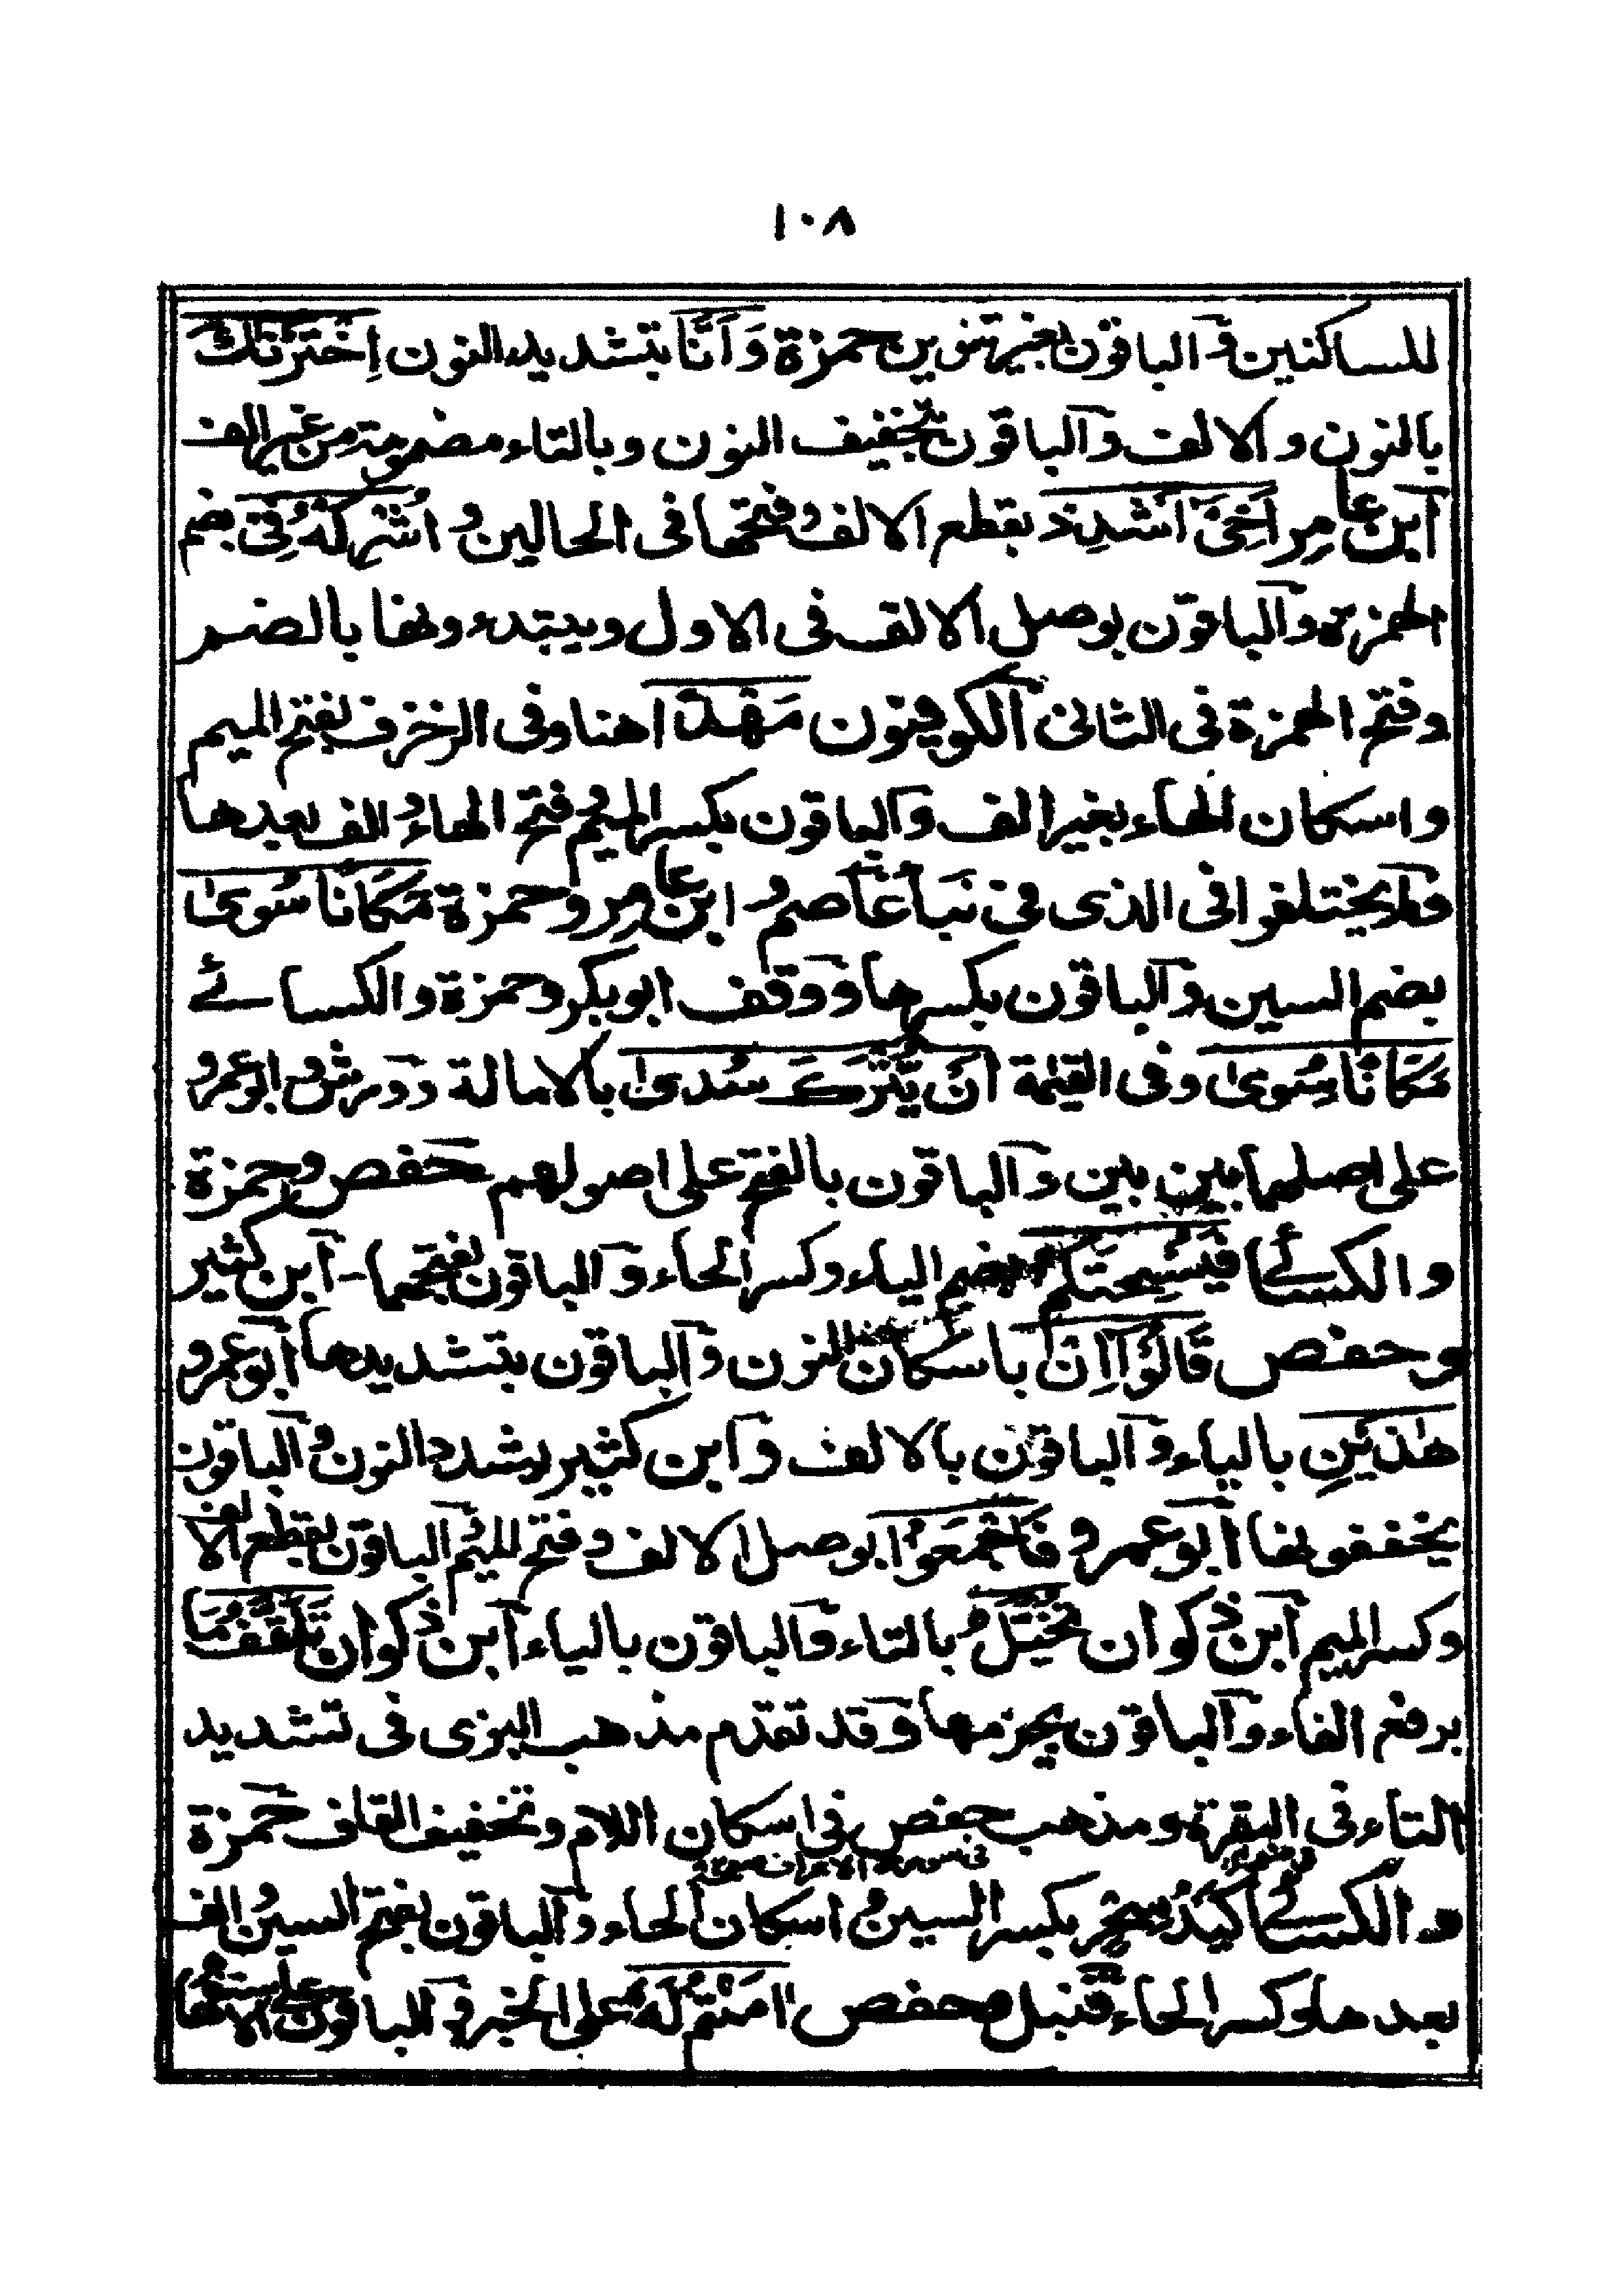 ١٠٨
للساكنين والباقون بغير تنوين حمزة وَاَنَّا بتشديد النون اِخْتَرْنٰكَ
بالنون والالف والباقون بتخفيف النون وبالتاء مضمومة من غير الف
ابن عامر اَخِىْ اَشْدِدْ بقطع الالف وفتحها فى الحالين و اُشْرِكْهُ فِىْ بضم
الهمزة والباقون بوصل الالف فى الاول ويبتدءونها بالضم
وفتح الهمزة فى الثانى الكوفيون مَهْدًا هنا وفى الزخرف بفتح الميم
واسكان الهاء بغير الف والباقون بكسر الميم وفتح الهاء والف بعدها
ولم يختلفوا فى الذى فى نبأ عاصم و ابن عامر وحمزة مَكَانًا سُوًى
بضم السين والباقون بكسرها ووقف ابو بكر وحمزة والكسائے
مَكَانًا سُوًى وفى القيٰمة اَنْ يُّتْرَكَ سُدًى بالامالة وورش وابو عمرو
على اصلهما بين بين والباقون بالفتح على اصولهم حفص وحمزة
والكسائے فَيُسْحِتَكُمْ بضم الياء وكسر الحاء والباقون بفتحهما - ابن كثير
وحفص قَالُوْا اِنْ باسكان النون والباقون بتشديدها ابو عمرو
هٰذَيْنِ بالياء والباقون بالالف وابن كثير يشدد النون والباقون
يخففونها ابو عمرو فَاجْمَعُوْا بوصل الالف وفتح الميم الباقون بقطع الالف
وكسر الميم ابن ذكوان تُخَيَّلُ بالتاء والباقون بالياء ابن ذكوان تَلَقَّفُ مَا
برفع الفاء والباقون بجزمها وقد تقدم مذهب البزى فى تشديد
التاء فى البقرة ومذهب حفص فى اسكان اللام وتخفيف القاف حمزة
فى سورة الاعراف
والكسائے كَيْدُ سِحْرٍ بكسر السين و اسكان الحاء والباقون بفتح السين والف
بعدها وكسر الحاء قنبل وحفص اٰمَنْتُمْ لَهٗ على الخبر والباقون على الاستفهام